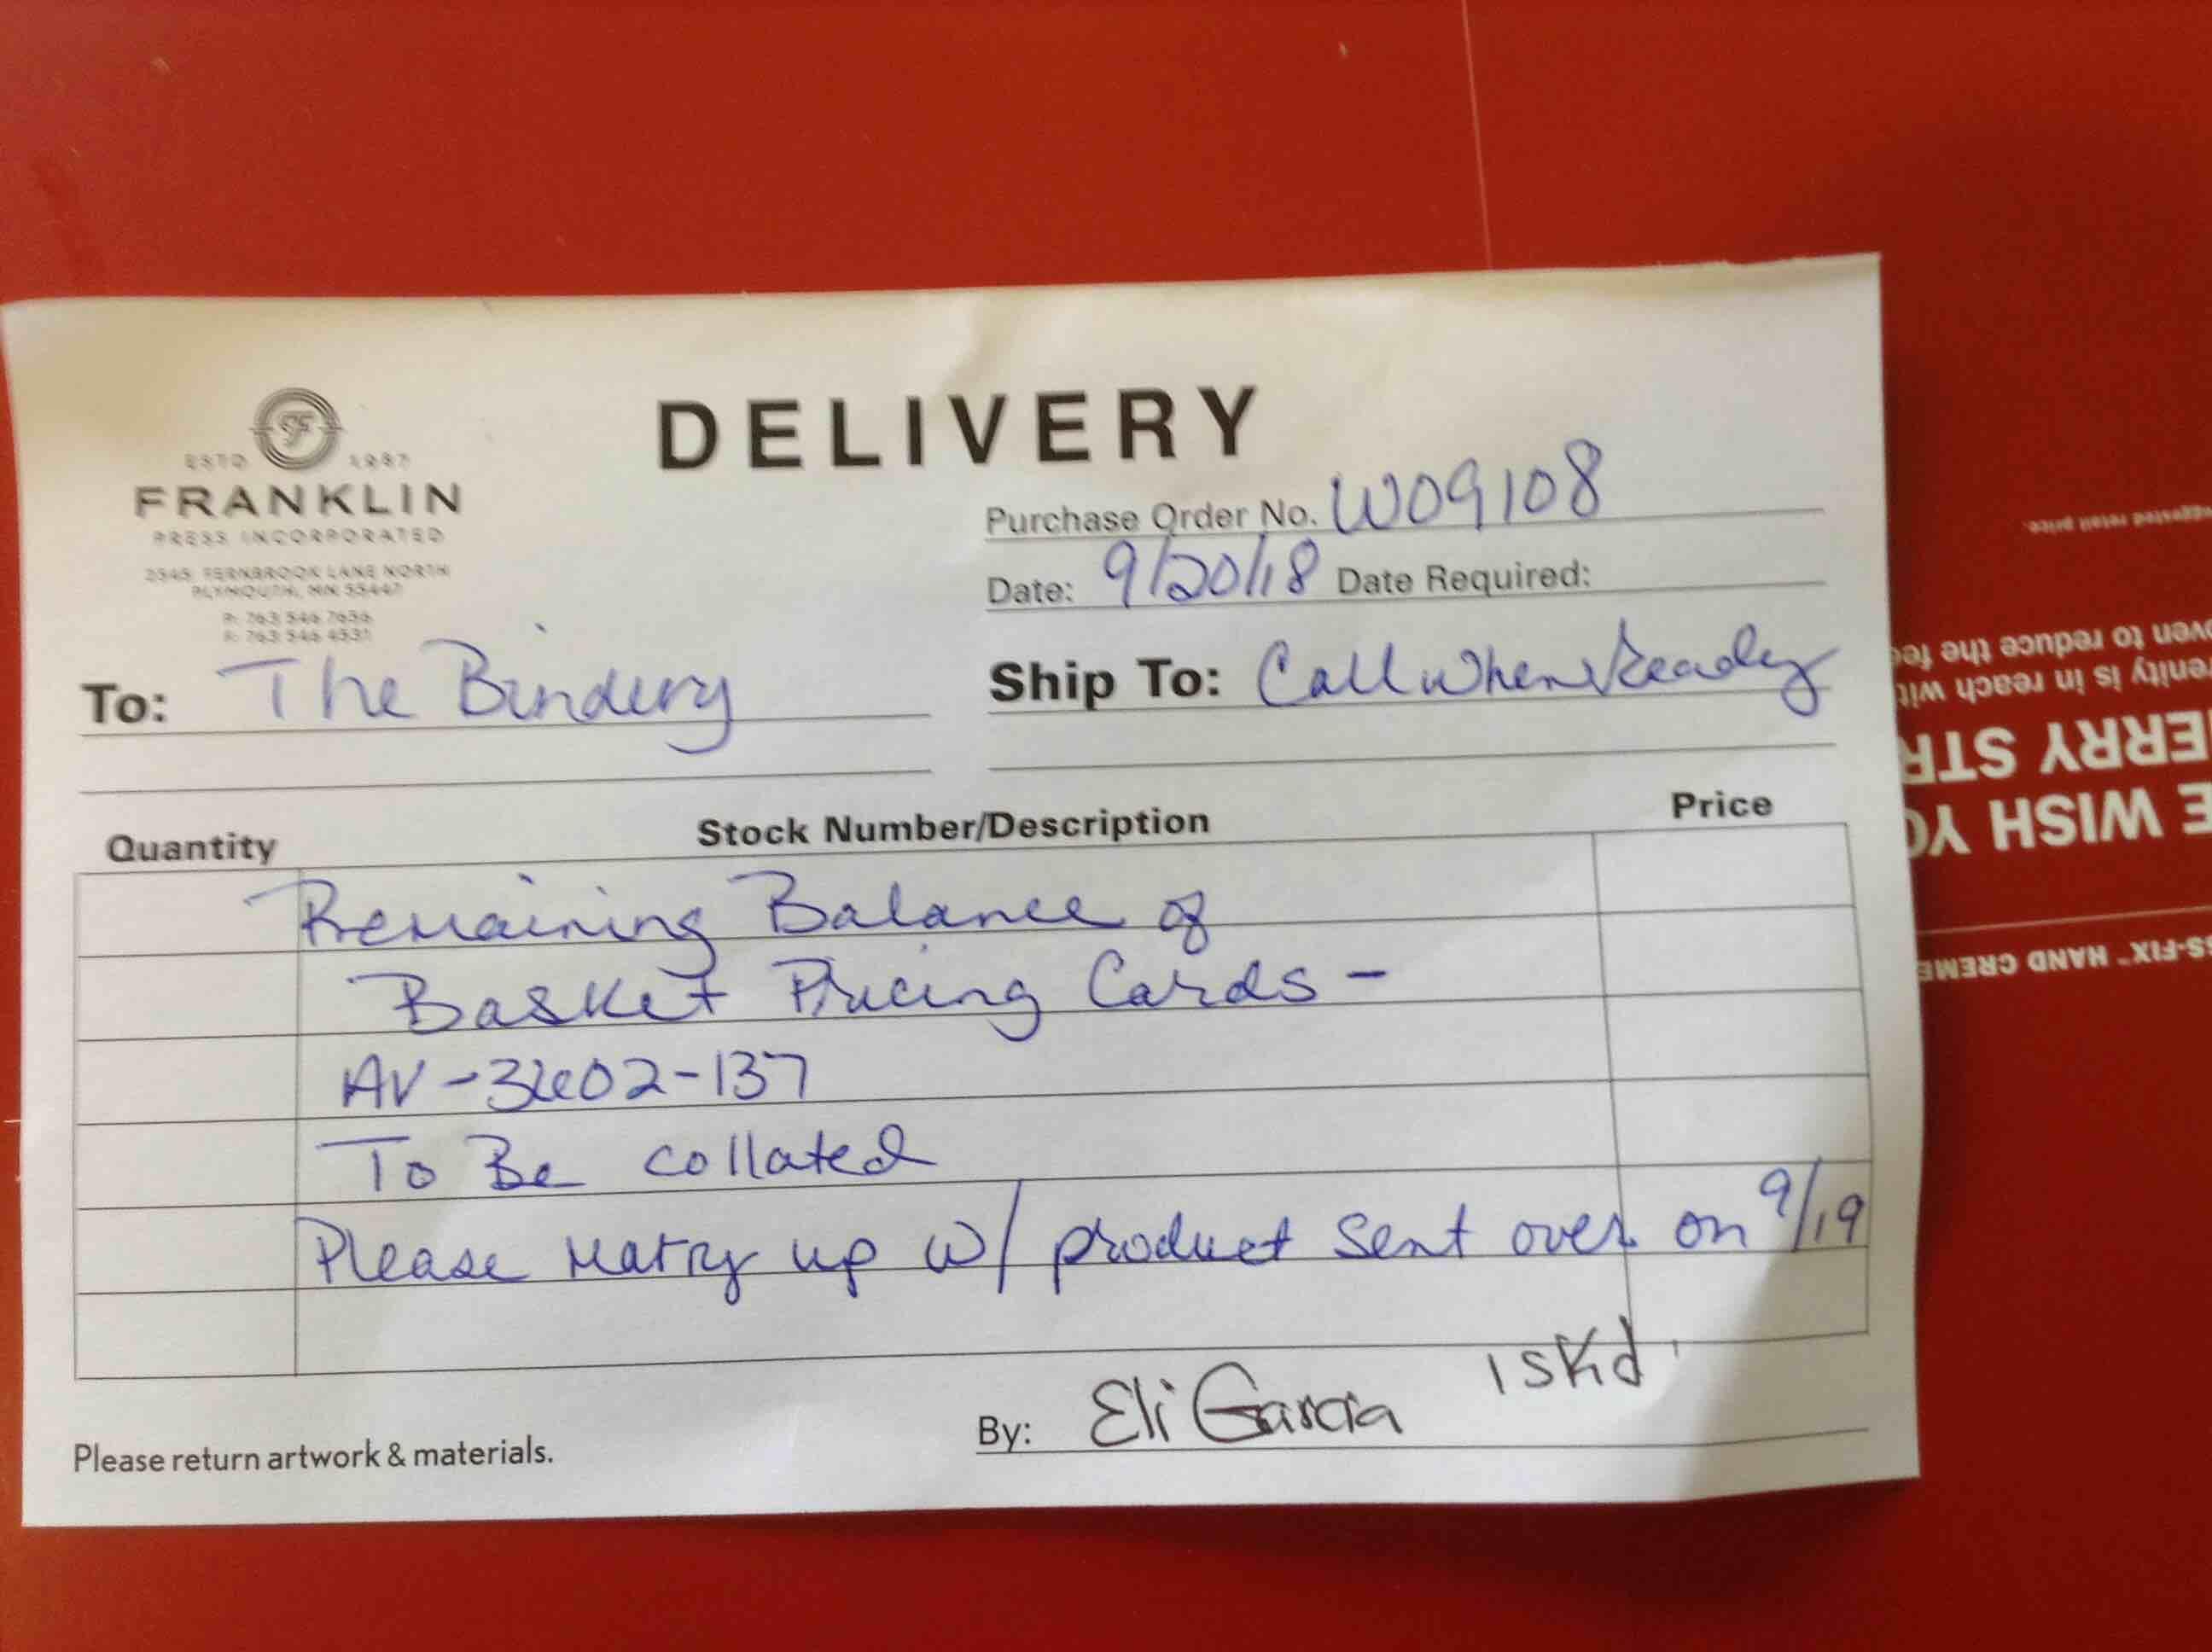 DELIVERY
ESTD 1987
FRANKLIN
PRESS INCORPORATED
2545 FERNBROOK LANE NORTH
PLYMOUTH, MN 55447
P: 763 546 7656
F: 763 546 4531
Purchase Order No. W09108
Date: 9/20/18 Date Required:
To: The Bindery
Ship To: Call when Ready
Quantity Stock Number/Description Price
Remaining Balance of
Basket Pricing Cards -
AV-3602-137
To Be collated
Please Marry up w/ product sent over on 9/19
1 SKd
By: Eli Garcia
Please return artwork & materials.
ggested retail price.
oven to reduce the fee
renity is in reach wit
ERRY STR
E WISH YO
SS-FIX™ HAND CREME